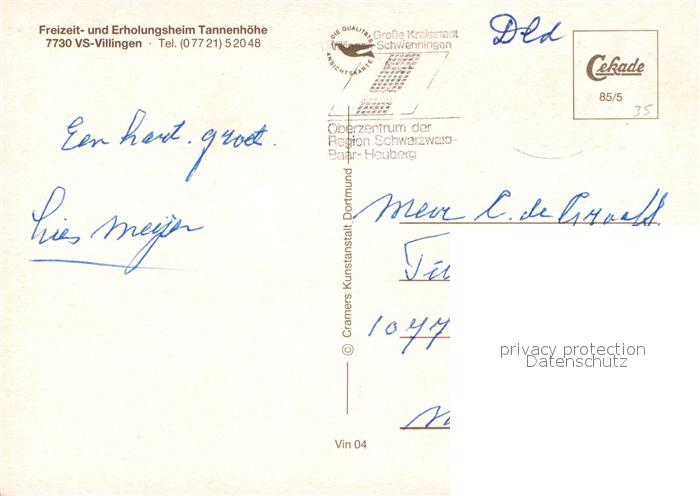 Freizeit- und Erholungsheim Tannenhöhe
7730 VS-Villingen · Tel. (0 77 21) 5 20 48
DIE QUALITÄTS
ANSICHTSKARTE
Große Kreisstadt
Villingen-Schwenningen
Oberzentrum der
Region Schwarzwald-
Baar-Heuberg
Dld
Cekade
85/5
35
Een hart. groet.
Lies Meijer
© Cramers Kunstanstalt, Dortmund
Mevr C. de Graaff
1077
privacy protection
Datenschutz
Vin 04